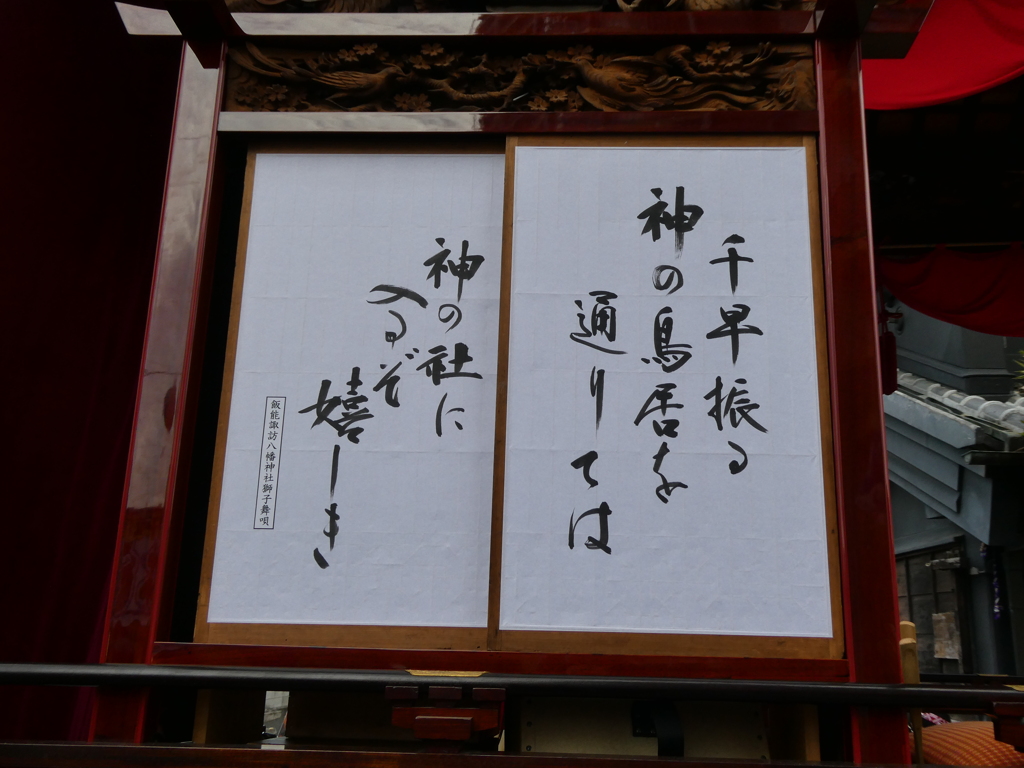 千早振る
神の鳥居を
通りては
神の社に
入るぞ
嬉しき
飯能諏訪八幡神社獅子舞唄